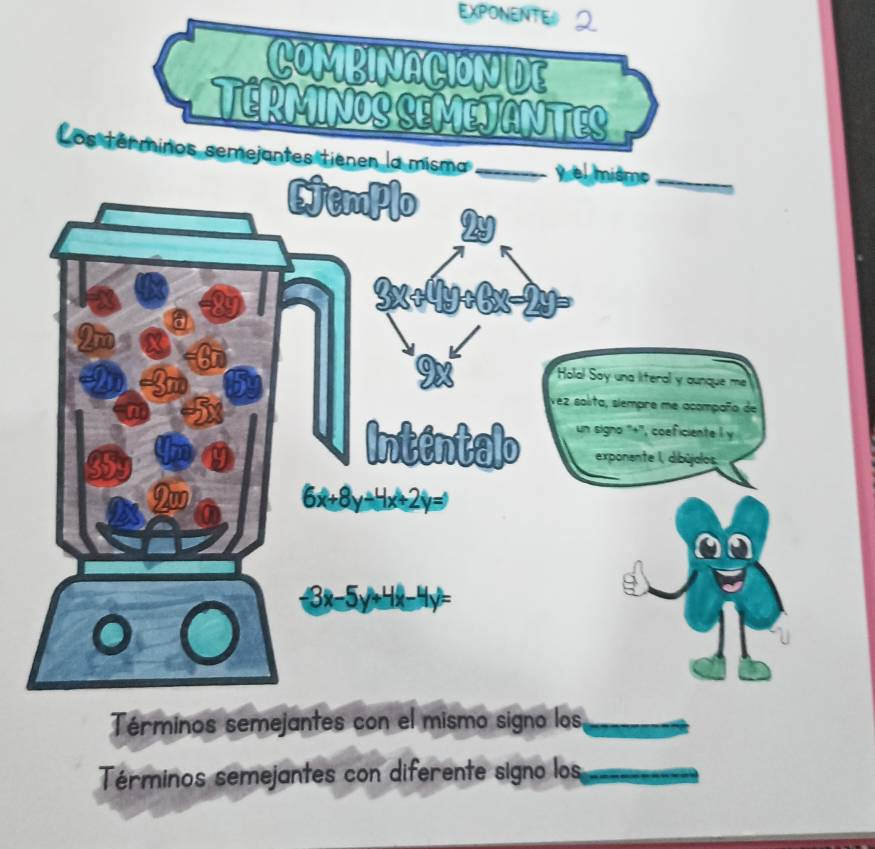 EXPONENTE: 2
COMBINACIÓN DE
TÉRMINOS SEMEJANTES
Los términos semejantes tienen la misma ________ y el mismo ________
Ejemplo
2y
3x+4y+6x-2y=
9x
-x 4x -8y
a
2m x -6n
-2n -3m 15y
-5x
Inténtalo
35y 4m y
2x 2w
6x+8y-4x+2y=
-3x-5y+4x-4y=
Hola! Soy una literal y aunque me
vez solita, siempre me acompaña de
un signo "+", coeficiente 1 y
exponente 1, dibújalos.
Términos semejantes con el mismo signo los ________
Términos semejantes con diferente signo los ________